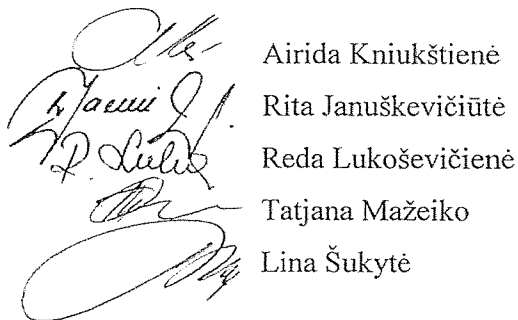 Airida Kniukštienė
Rita Januškevičiūtė
Reda Lukoševičienė
Tatjana Mažeiko
Lina Šukytė